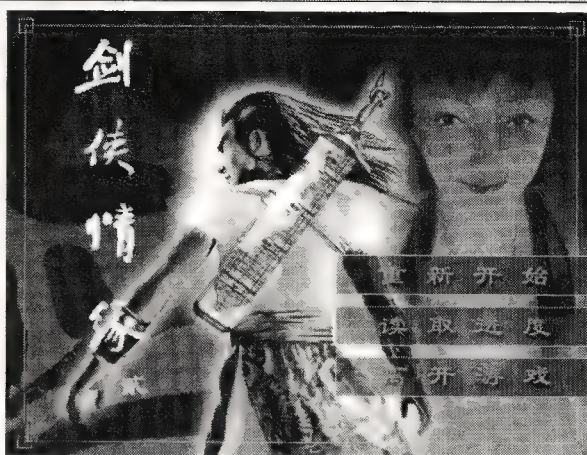 剑侠情缘
贰
重新开始
读取进度
离开游戏